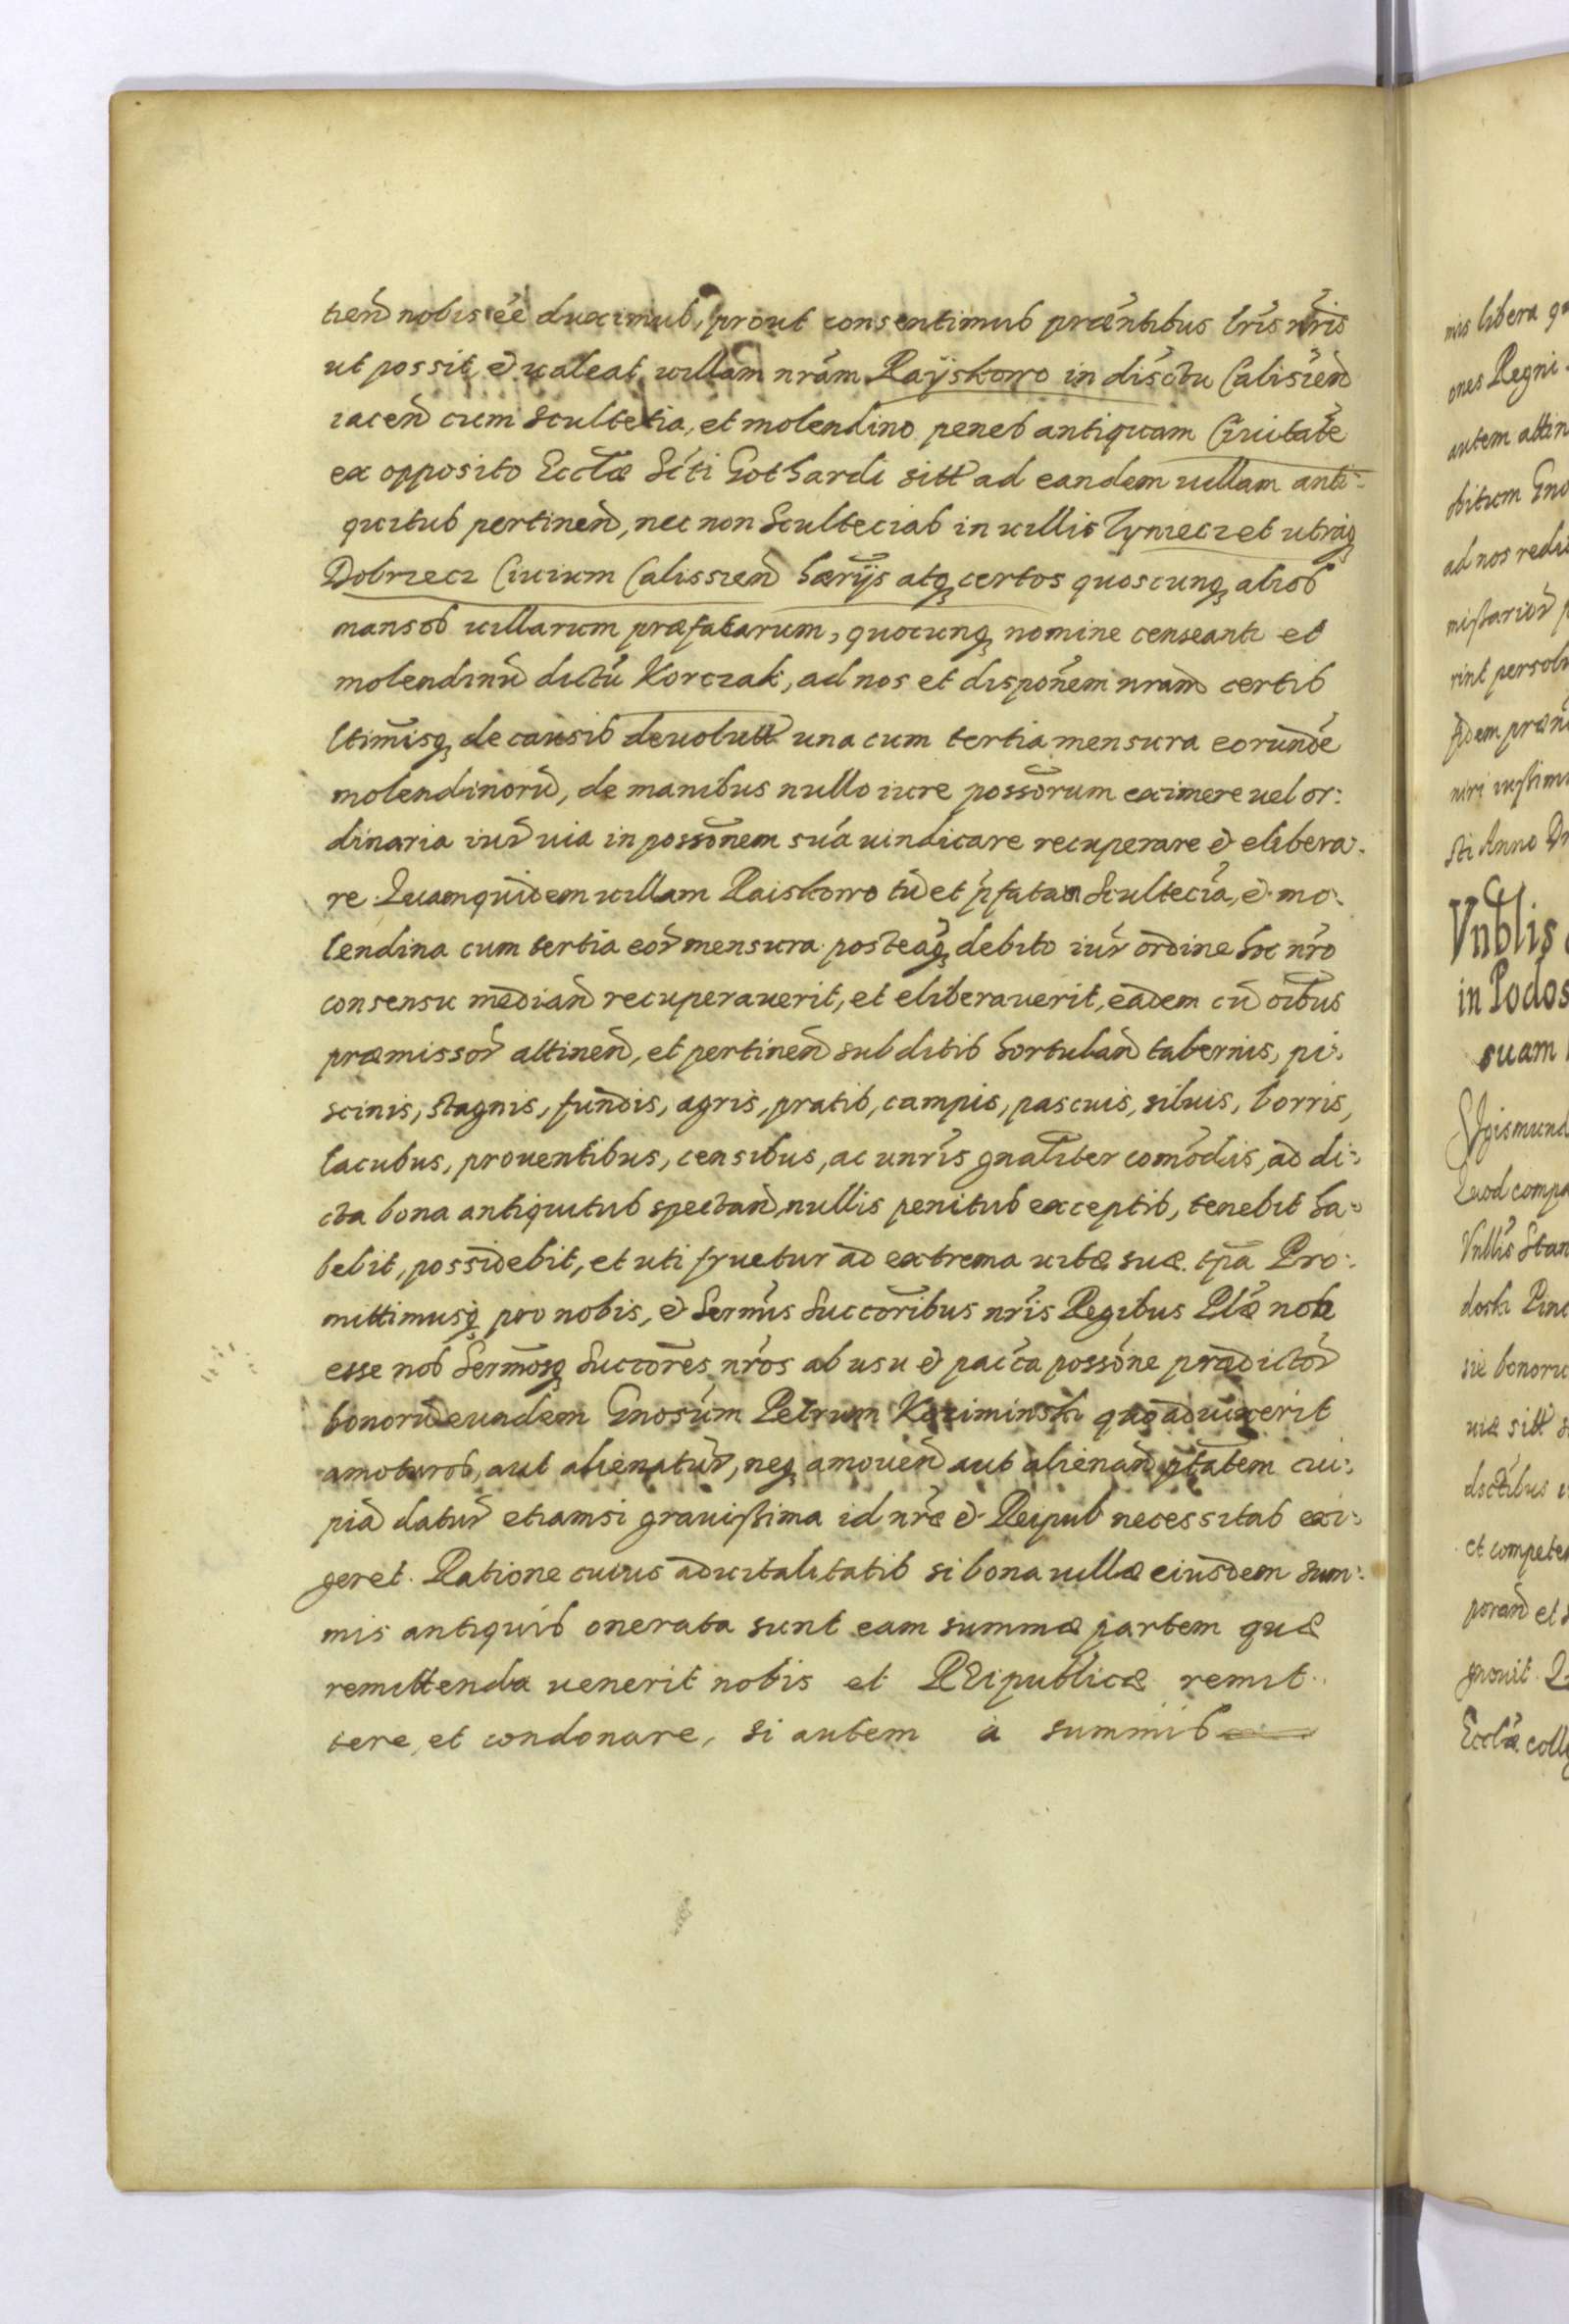 tień nobis ée duximus, prout consentimus præntibus lris nris
ut possit et ualeat uillam nram Rayskowo in disctu Calisień
iacen cum scultetia, et molendino penes antiquam Ciuitate
ex opposito Ecclæ Scti Gothardi sitt ad eandem uillam anti:
quitus pertinen, nec non Sculteciab in uillis Tyniecz et utraq
Dobrzecz Ciuium Calissien hærijs atq certos quoscunq alios
mansos uillarum præfatarum, quocunq nomine censeant et
molendinu dictu Korczak, ad nos et disponem nram certis
ltimisq de causis deuolutt una cum tertia mensura eorunde
molendinoru, de manibus nullo iure possorum eximere uel or:
dinaria iur uia in possonem sua uindicare recuperare et elibera:
re Quamquidem uillam Raiskowo tu et pfatam Scultecia, et mo:
lendina cum tertia eor mensura posteaq debito iur ordine hoc nro
consensu median recuperauerit, et eliberauerit, eadem cu oibus
præmissor attinen, et pertinen subditis hortulan tabernis, pi:
scinis, stagnis, fundis, agris, pratis, campis, pascuis, siluis, borris,
lacubus, prouentibus, censibus, ac unris gnaliter comodis, ad di:
cta bona antiquitus spectan, nullis penitus exceptis, tenebit ha:
bebit, possidebit, et uti fruetur ad extrema uitæ suæ tpa Pro:
mittimusq pro nobis, et Sermis Succoribus nris Regibus Plæ nole
esse nos Sermosq Succores nros ab usu et pacca possone prædictor
bonoru eundem Gnosum Petrum Koziminski quoad uixerit
amoturos, aut alienatur, neq amouen aut alienan ptatem cui:
pia datur etiamsi grauissima id nræ et Reipub necessitas exi:
geret. Ratione cuius aduitalitatis si bona uillæ eiusdem sum:
mis antiquis onerata sunt eam summæ partem quæ
remittenda uenerit nobis et REipublicæ remit:
tere, et condonare, si autem a summis
nis libera
ones Regni
autem attin
obitum Gno
ad nos redi
mistarior
rint persolu
fidem præn
nri iussimu
sti Anno Dn
Vnblis
in Podos
suam
Sgismund
Quod compa
Vnblis Stan
doski Pinc
sie bonoru
uiæ sitt
dsctibus
et compete
poran et
gnouit
Ecclæ colle